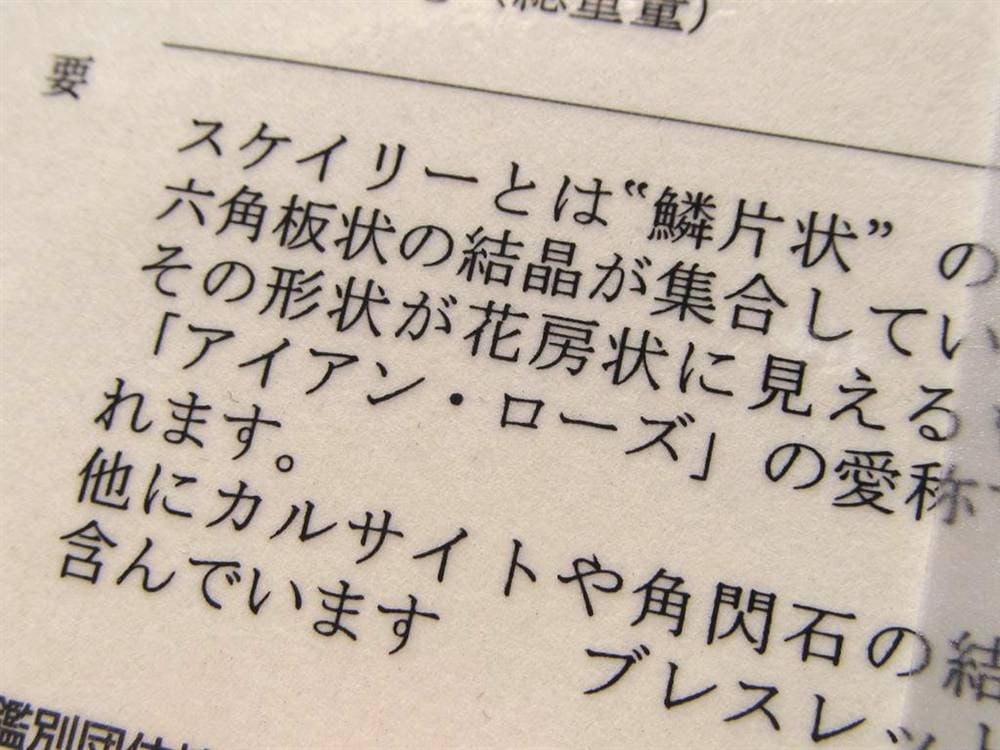 （総重量）
要
スケイリーとは“鱗片状”の
六角板状の結晶が集合してい
その形状が花房状に見える
「アイアン・ローズ」の愛称
れます。
他にカルサイトや角閃石の結
含んでいます
ブレスレット
鑑別団体